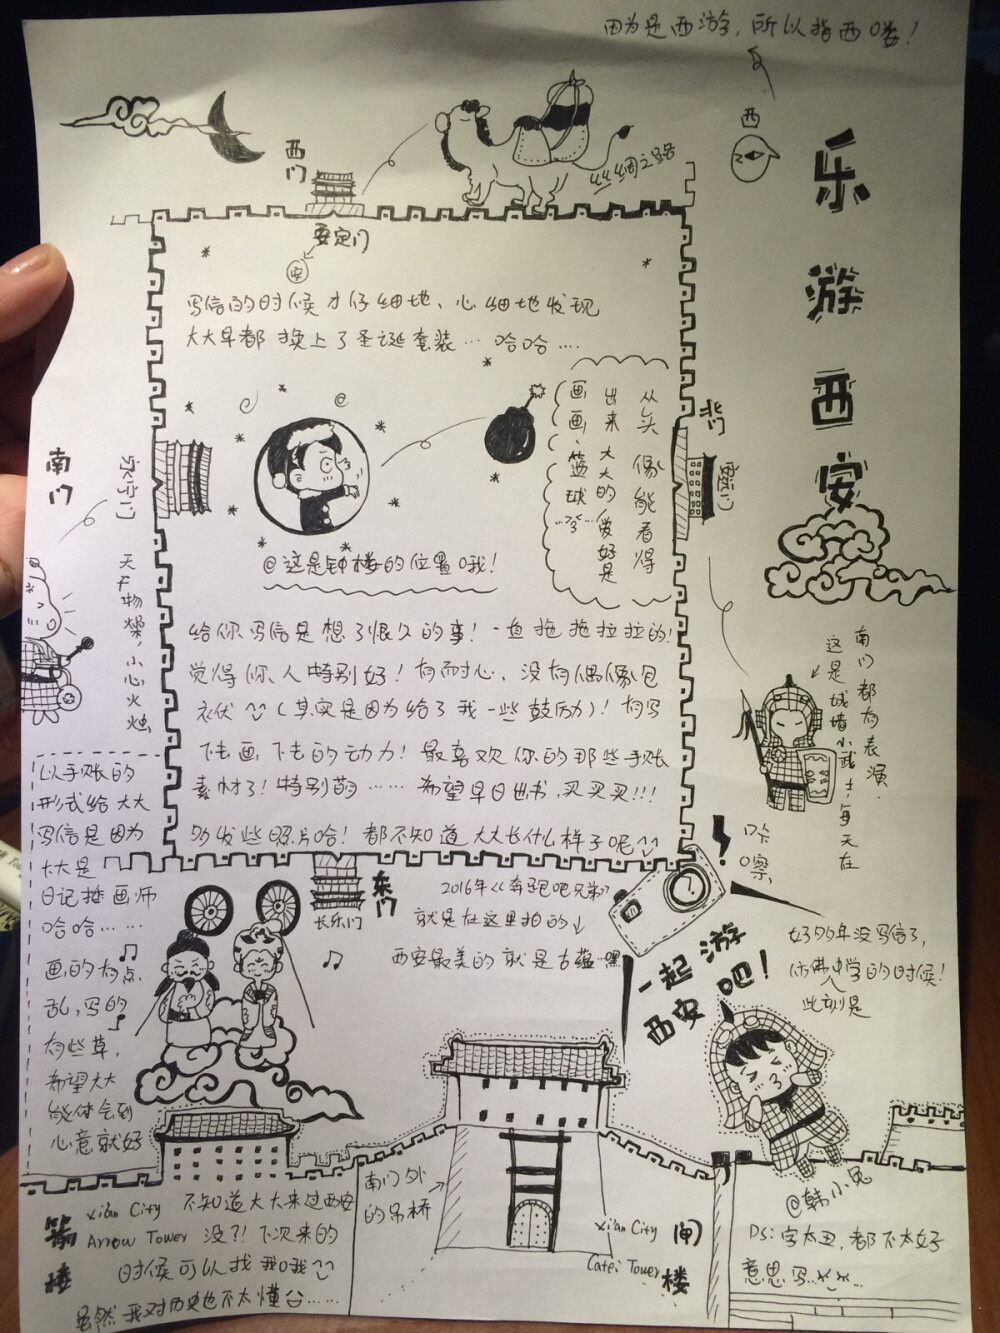 因为是西游，所以指西喽！
西
乐游西安
西门
丝绸之路
安定门
安
写信的时候才仔细地、心细地发现
大大早都换上了圣诞套装…哈哈….
从头像能看得
出来大大的爱好是
画画、篮球…
北门
安远门
南门
永宁门
天干物燥，小心火烛
@这是钟楼的位置哦！
给你写信是想了很久的事！一直拖拖拉拉的！
觉得你人特别好！有耐心、没有偶像包
袱（其实是因为给了我一些鼓励）！有写
下去画下去的动力！最喜欢你的那些手账
素材了！特别萌……希望早日出书，买买买！！！
多发些照片哈！都不知道大大长什么样子呢
南门都有表演.
这是城墙小武士，每天在
以手账的
形式给大大
写信是因为
大大是
日记插画师
哈哈……
画的有点
乱，写的
有些草，
希望大大
能体会到
心意就好
东门
长乐门
2016年《奔跑吧兄弟》
就是在这里拍的↓
西安最美的就是古蕴…嘿
咔嚓
一起游
西安吧！
好多年没写信了，
仿佛中学的时候！
此刻是
@韩小兔
南门外
的吊桥
箭楼
Xi'an City
Arrow Tower
不知道大大来过西安
没？！下次来的
时候可以找我哦
虽然我对历史也不太懂……
Xi'an City
Catei Tower
闸楼
PS：字太丑，都不太好
意思写……